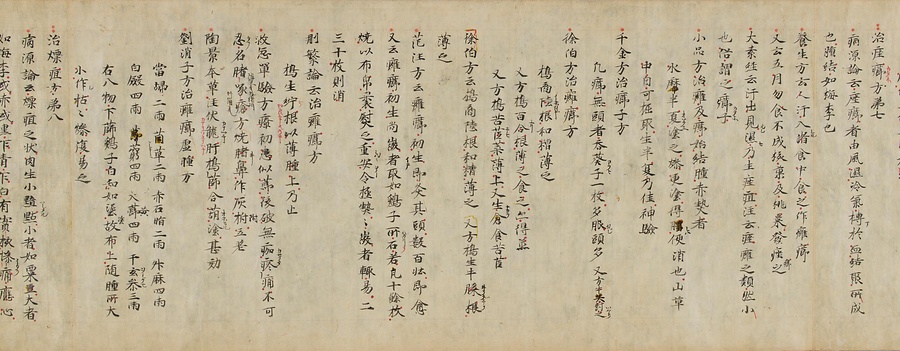 治痤癤方第七
病源論云痤癤者由風濕冷氣搏於血結聚所成
也腫結如梅李也
養生方云人汗入諸食中食之作癰癤
又云五月勿食不成核菓及桃棗發癰之
大素経云汗出見濕乃生痤疽注云痤癰之類然小
也俗謂之癤子
小品方治癰及癤始結腫赤熱者
水摩半夏塗之燥更塗得便消也山草
中自可掘取生半夏乃佳神驗
千金方治癤子方
凡癤無頭者吞葵子一枚
徐伯方治癰癤方
搗商陸根和糟薄之
又方搗百合根薄之
又方搗苦苣菜薄上又生食苦苣
薄之
徐伯方云搗商陸根和糟薄之 又方搗生牛膝根
范汪方云癰癤初生即灸其頭數百壯即愈
又云癰癤初生尚微者取如鷄子所石若瓦十餘枚
燒以布帛裹熨之
三十枚則消
删繁論云治癰癤方
搗生紵根以薄腫上乃止
救急單驗方療初患似癤後破無痂疼痛不可
忍名猪啄瘡方燒猪鼻作灰
陶景本草注伏龍肝搗篩合胡塗甚効
劉涓子方治癰癤虚腫方
當歸二兩 茵草二兩 赤石脂二兩 升麻四兩
白斂四兩 芎藭四兩 大黄四兩 干玄參三兩
右八物下篩鷄子白和如塗故布上随腫所大
小作帖之燥復易之
治熛疽方第八
病源論云熛疽之状肉生小黯點小者如粟豆大者
如梅李或赤或黒乍青乍白有實核慘痛應心